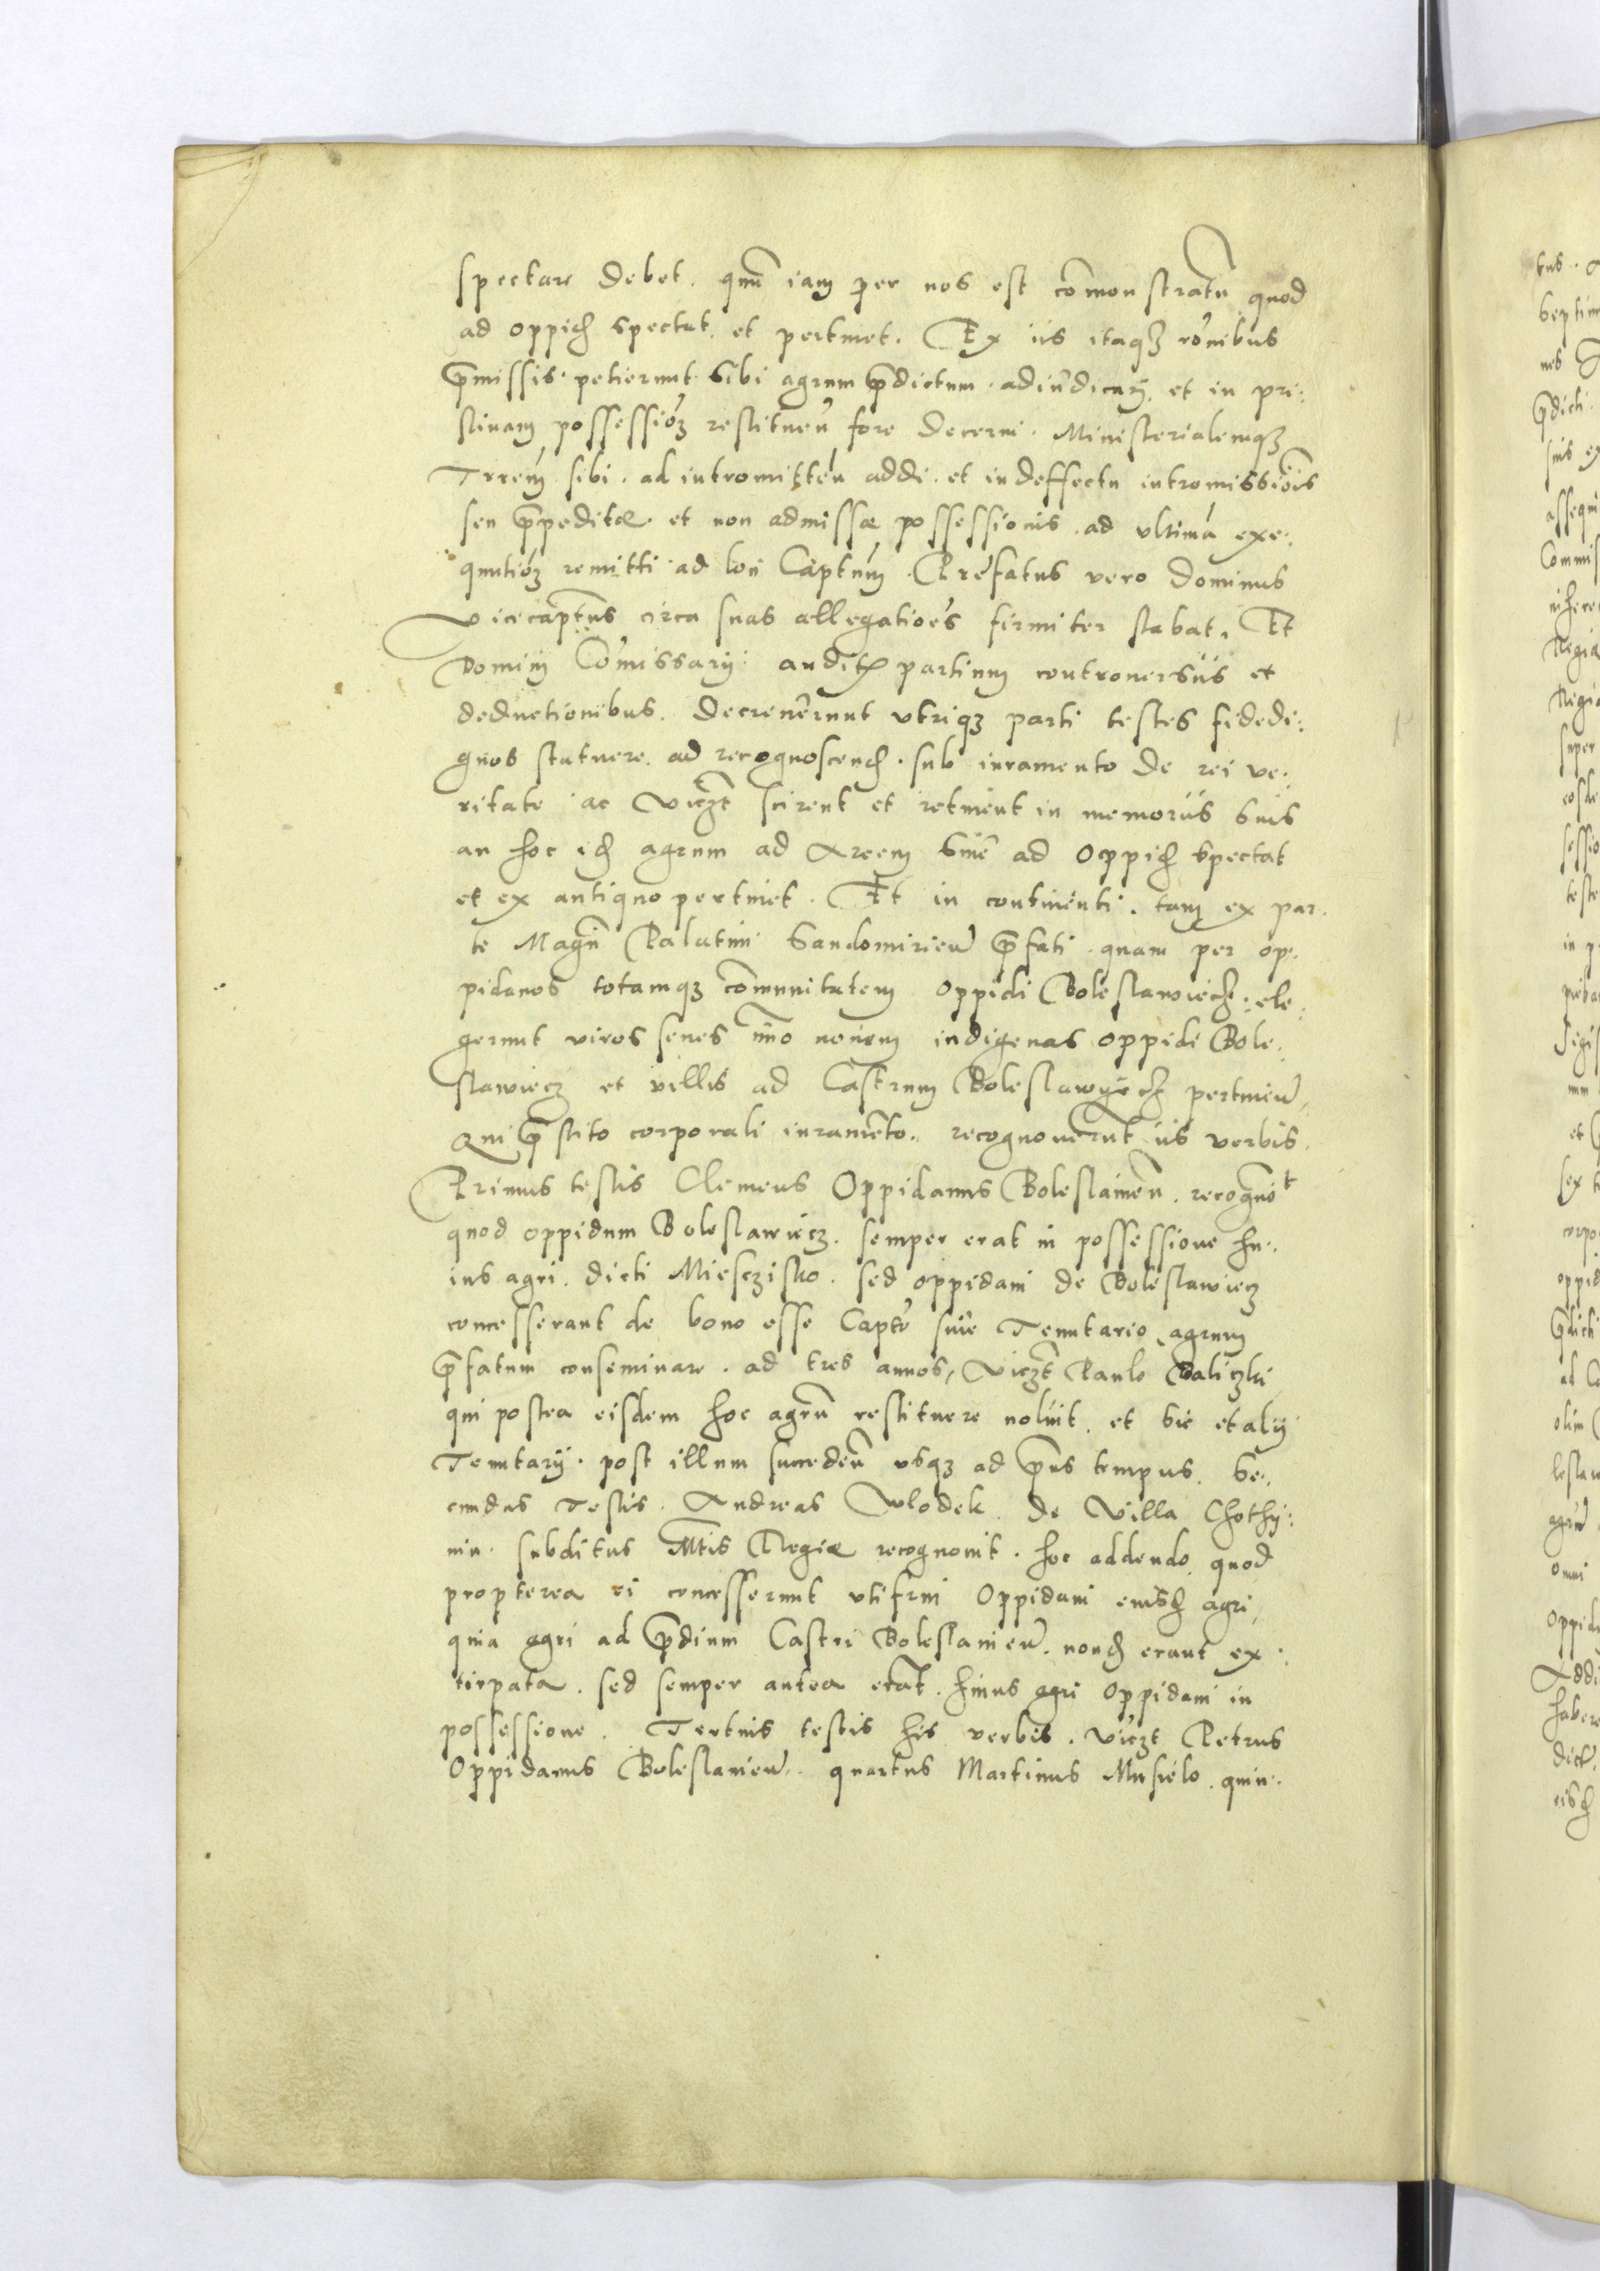 spectare debet. qm̄ iam per nos est cōmonstratū quod
ad oppid̄ spectat. et pertinet. Ex iis itaqꝫ rōnibus
p̄missis. petierunt sibi agrum p̄dictum. adiudicarj. et in pri-
stinam possessiōꝫ restitueñ fore decerni. Ministerialemqꝫ
Trrem̄ sibi. ad intromitteñ addi. et in deffectu intromissiōis
seu p̄peditæ. et non admissæ possessionis. ad vltimā exe-
qutiōꝫ remitti ad loci Captum̄. Prefatus vero Dominus
Vicecaptūs circa suas allegatioēs firmiter stabat. Et
Domini Cōmissarij. auditꝭ partium controuersiis et
deductionibus. Decreuerunt vtriqꝫ parti testes fidedi-
gnos statuere. ad recognoscend̄. sub iuramento de rei ve-
ritate ac viczt̄ scirent et retinent in memoriis suis
an hoc id̄ agrum ad Arcem siue ad Oppid̄ spectat
et ex antiquo pertinet. Et in continenti. tam ex par-
te Magn̄ Palatini Sandomirieñ p̄fati. quam per op-
pidanos totamqꝫ cōmunitatem oppidi Boleslawiecz. ele-
gerunt viros senes īmo nouem indigenas oppidi Bole-
slawiecz et villis ad Castrum Boleslawyecz pertineñ
Qui p̄stito corporali iuramēto. recognouerunt iis verbis.
Primus testis Clemens Oppidanus Boleslauieñ. recognouᵗ
quod oppidum Boleslawiecz. semper erat in possessione hu-
ius agri. dicti Miesczisko. sed oppidani de Boleslawiecz
concesserant de bono esse Captō siue Tenutario agrum
p̄fatum conseminare. ad tres annos, viczt̄ Paulo Baliczki
qui postea eisdem hoc agrū restituere noluit. et sic et alij
Tenutarij. post illum succedeñ vsqꝫ ad p̄ns tempus. Se-
cundus Testis. Andreas Wlodek. de Villa Chothy-
nin. subditus Mtis Regiæ recognouit. hoc addendo quod
propterea ei concesserunt vtifrui Oppidani eiusd̄ agri,
quia agri ad p̄dium Castri Boleslauieñ. nond̄ erant ex-
tirpata. sed semper antea erat. huius agri Oppidani in
possessione. Tertius testis his verbis. viczt Petrus
Oppidanus Boleslauieñ. quartus Martinus Musielo. quin-